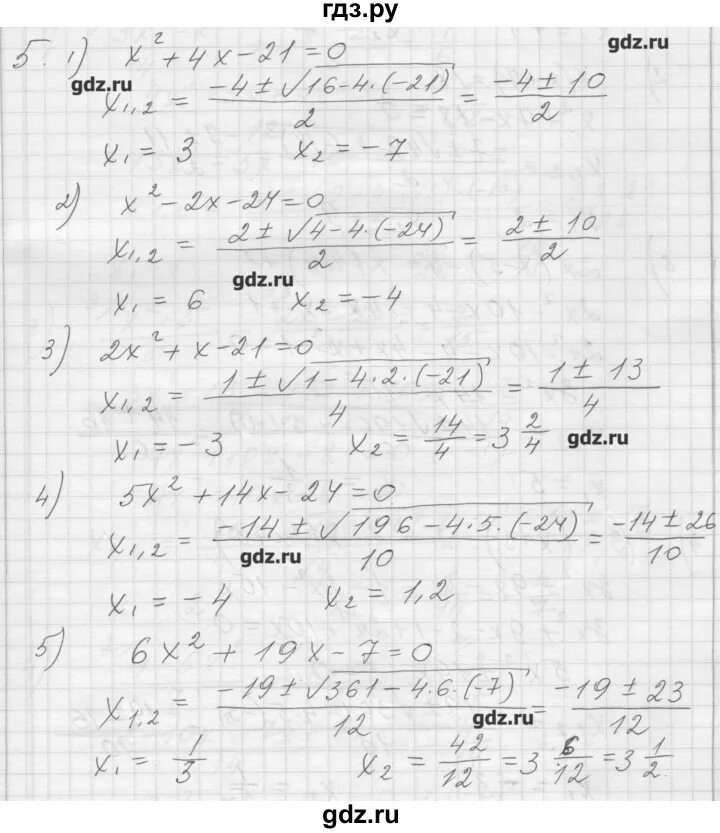 гдз.ру
5. 1) x² + 4x - 21 = 0
gdz.ru
gdz.ru
x₁,₂ = (-4 ± √(16 - 4·(-21)))/2 = (-4 ± 10)/2
x₁ = 3 x₂ = -7
2) x² - 2x - 24 = 0
x₁,₂ = (2 ± √(4 - 4·(-24)))/2 = (2 ± 10)/2
gdz.ru
x₁ = 6 x₂ = -4
3) 2x² + x - 21 = 0
x₁,₂ = (1 ± √(1 - 4·2·(-21)))/4 = (1 ± 13)/4
x₁ = -3 x₂ = 14/4 = 3 2/4
gdz.ru
4) 5x² + 14x - 24 = 0
x₁,₂ = (-14 ± √(196 - 4·5·(-24)))/10 = (-14 ± 26)/10
gdz.ru
x₁ = -4 x₂ = 1,2
5) 6x² + 19x - 7 = 0
x₁,₂ = (-19 ± √(361 - 4·6·(-7)))/12 = (-19 ± 23)/12
gdz.ru
x₁ = 1/3 x₂ = 42/12 = 3 6/12 = 3 1/2.
gdz.ru